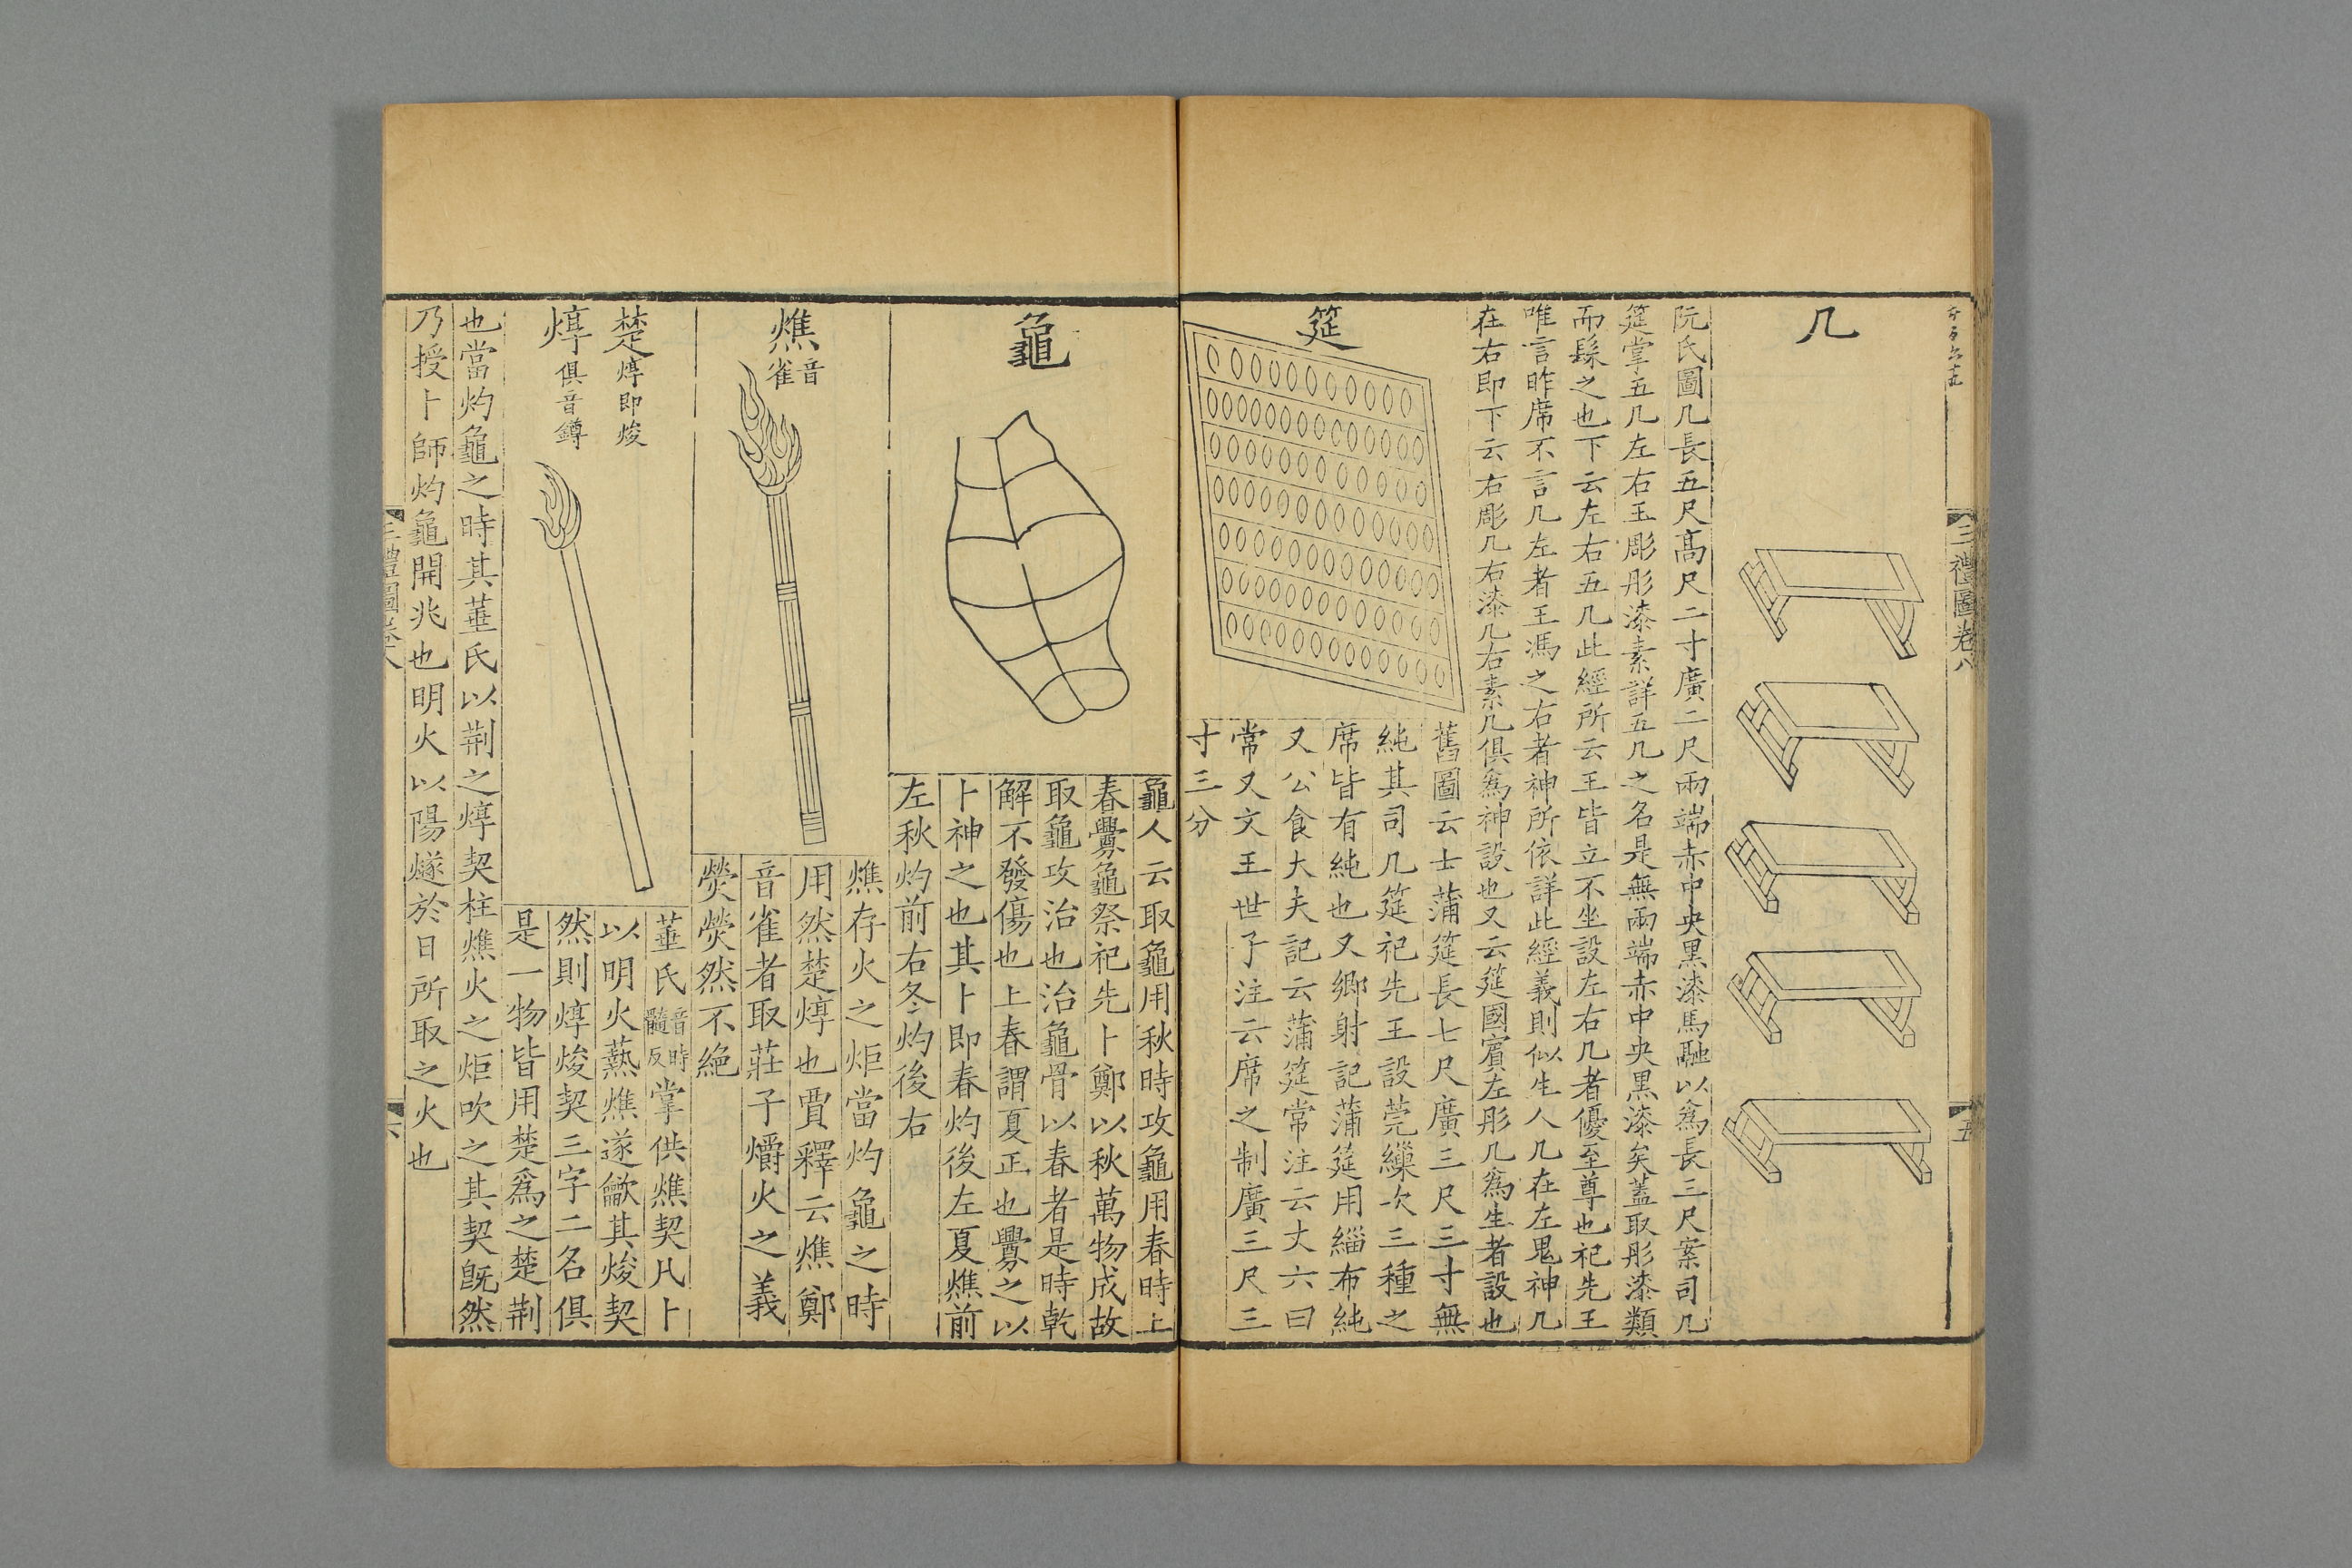 三禮圖卷八
五
几
阮氏圖几長五尺髙尺二寸廣二尺兩端赤中央黒漆馬融以爲長三尺案司几
筵掌五几左右玉彫彤漆素詳五几之名是無兩端赤中央黒漆矣蓋取彤漆類
而髹之也下云左右五几此經所云王皆立不坐設左右几者優至尊也祀先王
唯言昨席不言几左者王馮之右者神所依詳此經義則似生人几在左鬼神几
在右即下云右彫几右漆几右素几俱爲神設也又云筵國賓左彤几爲生者設也
筵
舊圖云士蒲筵長七尺廣三尺三寸無
純其司几筵祀先王設莞繅次三種之
席皆有純也又鄉射記蒲筵用緇布純
又公食大夫記云蒲筵常注云丈六曰
常又文王世子注云席之制廣三尺三
寸三分
龜
龜人云取龜用秋時攻龜用春時上
春釁龜祭祀先卜鄭以秋萬物成故
取龜攻治也治龜骨以春者是時乾
解不發傷也上春謂夏正也釁之以
卜神之也其卜即春灼後左夏燋前
左秋灼前右冬灼後右
燋音雀
燋存火之炬當灼龜之時
用然楚焞也賈釋云燋鄭
音雀者取莊子爝火之義
熒熒然不絶
楚焞即焌
焞俱音鐏
菙氏音時髓反掌供燋契凡卜
以明火爇燋遂龡其焌契
然則焞焌契三字二名俱
是一物皆用楚爲之楚荆
也當灼龜之時其菙氏以荆之焞契柱燋火之炬吹之其契既然
乃授卜師灼龜開兆也明火以陽燧於日所取之火也
三禮圖卷八
六